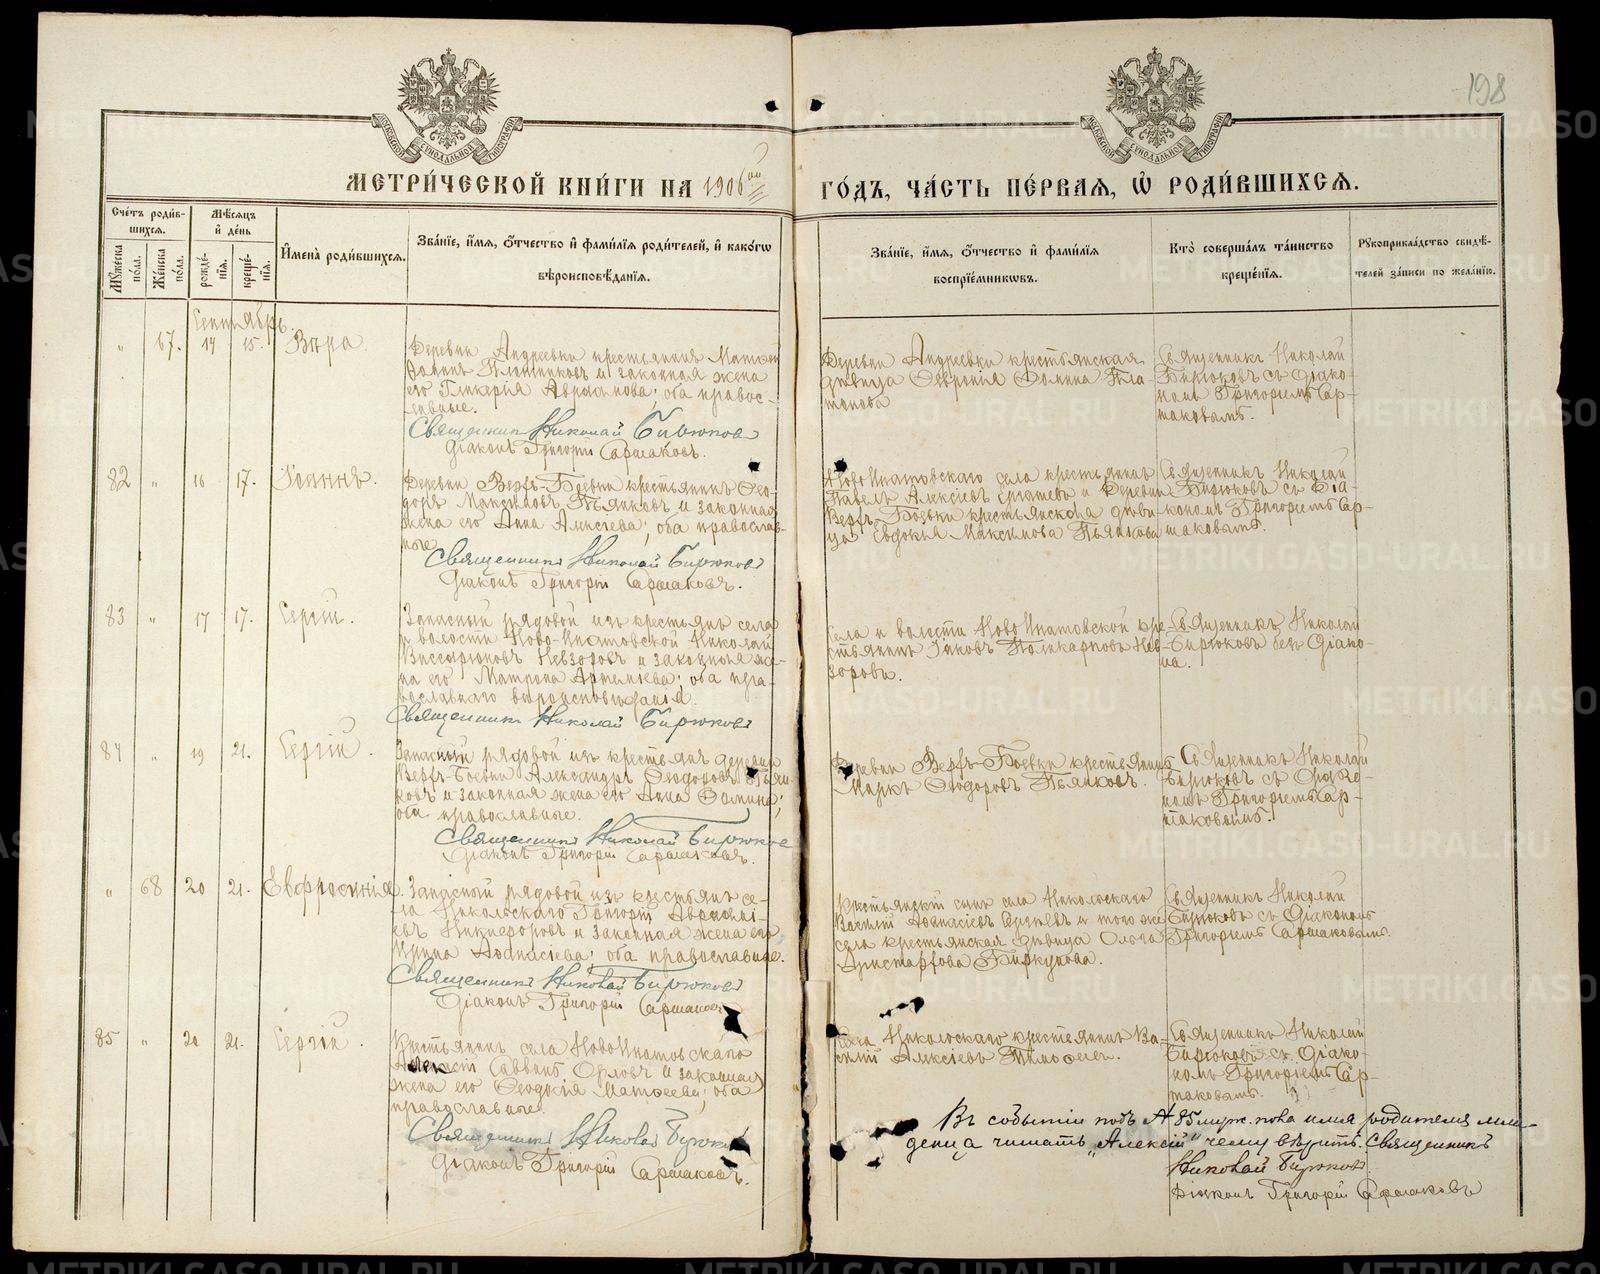 198
МОСКОВСКОЙ СѴНОДАЛЬНОЙ ТИПОГРАФІИ
МОСКОВСКОЙ СѴНОДАЛЬНОЙ ТИПОГРАФІИ
МЕТРИ́ЧЕСКОЙ КНИ́ГИ НА 1906ой
ГО́ДЪ, ЧА́СТЬ ПЕ́РВАЯ, Ѡ҆ РОДИ́ВШИХСЯ.
Сче́тъ роди́в-
шихся.
Мѣ́сяцъ
и҆ де́нь
Мꙋ́жеска
по́ла.
Же́нска
по́ла.
рожде́-
нїя.
креще́-
нїя.
И҆мена̀ роди́вшихся.
Зва́нїе, и҆́мя, ѻ҆́тчество и҆ фами́лїя роди́телей, и҆ како́гѡ
вѣроисповѣ́данїя.
Зва́нїе, и҆́мя, ѻ҆́тчество и҆ фами́лїя
воспрїе́мникѡвъ.
Кто̀ соверша́лъ та́инство
креще́нїя.
Рꙋкоприкла́дство свидѣ́-
телей за́писи по жела́нїю.
Сентябрь.
" 67. 14 15. Вѣра.
Деревни Андреевки крестьянинъ Матѳей
Ѳоминъ Плотниковъ и законная жена
его Гликерія Авраамова; оба правос-
лавные.
Священникъ Николай Бирюковъ
Діаконъ Григорій Сармаковъ.
Деревни Андреевки крестьянская
дѣвица Ѳевронія Ѳомина
Священникъ Николай
Бирюковъ съ діако-
номъ Григоріемъ Сар-
маковымъ.
82 " 16 17. Іоаннъ.
Деревни Верхъ-Боевки крестьянинъ Ѳео-
доръ Максимовъ Пьянковъ и законная
жена его Анна Алексіева; оба православ-
ные.
Священникъ Николай Бирюковъ
Діаконъ Григорій Сармаковъ.
Ново Ипатовскаго села крестьянинъ
Павелъ Алексіевъ и деревни
Верхъ-Боевки крестьянская дѣви-
ца Евдокія Максимова Пьянкова
Священникъ Николай
Бирюковъ съ діа-
кономъ Григоріемъ Сар-
маковымъ.
83 " 17 17. Сергій.
Запасный рядовой изъ крестьянъ села
и волости Ново-Ипатовской Николай
Виссаріоновъ Невзоровъ и законная же-
на его Матрона Артеміева; оба пра-
вославнаго вѣроисповѣданія.
Священникъ Николай Бирюковъ
Села и волости Ново Ипатовской кре-
стьянинъ Іаковъ Поликарповъ Нев-
зоровъ.
Священникъ Николай
Бирюковъ безъ діако-
на.
84 " 19 21. Сергій.
Запасный рядовой изъ крестьянъ деревни
Верхъ-Боевки Александръ Ѳеодоровъ Пьян-
ковъ и законная жена его Анна Ѳомина;
оба православные.
Священникъ Николай Бирюковъ
Діаконъ Григорій Сармаковъ.
Деревни Верхъ-Боевки крестьянинъ
Маркъ Ѳеодоровъ Пьянковъ.
Священникъ Николай
Бирюковъ съ діако-
номъ Григоріемъ Сар-
маковымъ.
" 68 20 21. Евфросинія.
Запасный рядовой изъ крестьянъ се-
ла Никольскаго Григорій
Никифоровъ и законная жена его
Ирина Аѳанасіева; оба православные.
Священникъ Николай Бирюковъ
Діаконъ Григорій Сармаковъ
Крестьянскій сынъ села Никольскаго
Василій Аѳанасіевъ и того же
села крестьянская дѣвица Ольга
Аристархова
Священникъ Николай
Бирюковъ съ діакономъ
Григоріемъ Сармаковымъ.
85 " 20 21. Сергій.
Крестьянинъ села Ново Ипатовскаго
Саввинъ Орловъ и законная
жена его Ѳеодосія Матѳеева; оба
православные.
Священникъ Николай Бирюковъ
Діаконъ Григорій Сармаковъ.
Села Никольскаго крестьянинъ Ва-
силій Алексіевъ
Священникъ Николай
Бирюковъ съ діако-
номъ Григоріемъ Сар-
маковымъ.
Въ событіи подъ № 85 муж. пола имя родителя мла-
денца читать "Алексій" чему вѣрить. Священникъ
Николай Бирюковъ.
Діаконъ Григорій Сармаковъ
METRIKI.GASO-URAL.RU